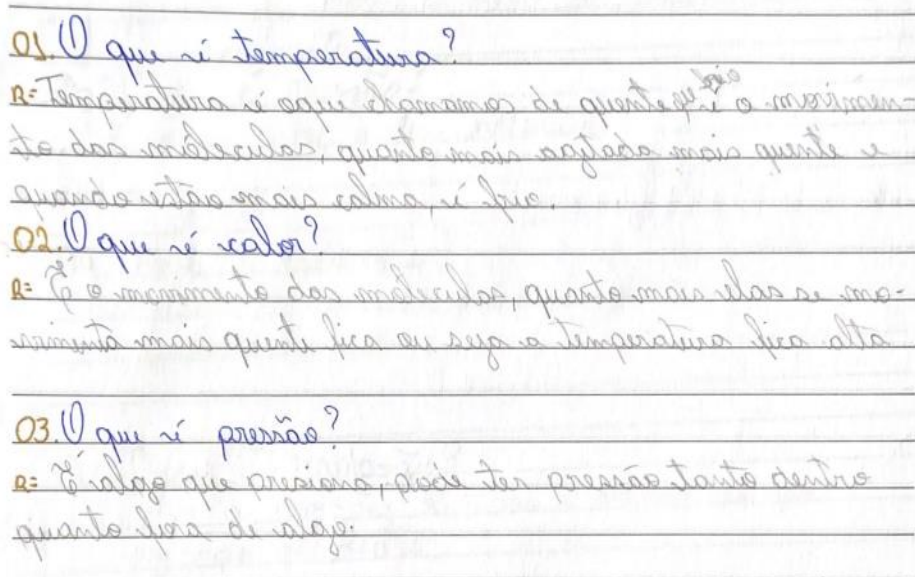 01. O que é temperatura?
R= Temperatura é oque chamamos de quente, que é o movimen-
to das moleculas, quanto mais agitadas mais quente e
quando estão mais calma, é frio.
02. O que é calor?
R= É o movimento das moleculas, quanto mais elas se mo-
vimenta mais quente fica ou seja a temperatura fica alta
03. O que é pressão?
R= É algo que presiona, pode ter pressão tanto dentro
quanto fora de algo.